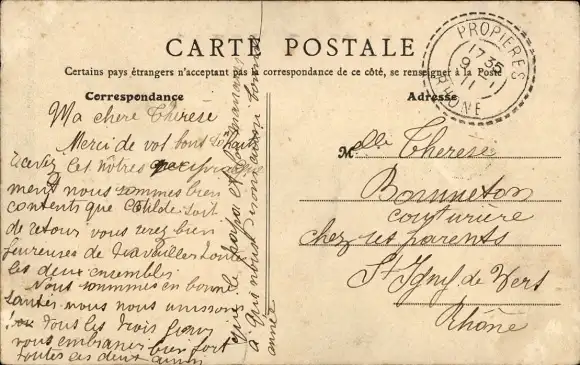 CARTE POSTALE
Certains pays étrangers n'acceptant pas la correspondance de ce côté, se renseigner à la Poste
Correspondance
Ma chere Therese
Merci de vos bons souhaits
Recevez les nôtres
ment nous sommes bien
contents que soit
de retour vous serez bien
heureuses de travailler toute
les deux ensembles
Nous sommes en bonne
santer nous nous unisson
tous les trois pour
vous embrasser bien fort
toutes les deux
ainsi
a
bonne
année
Adresse
Melle Therese
Bonneton
couturière
chez ses parents
St Igny de Vers
Rhône
PROPIERES
17 35
9 1
11
RHONE